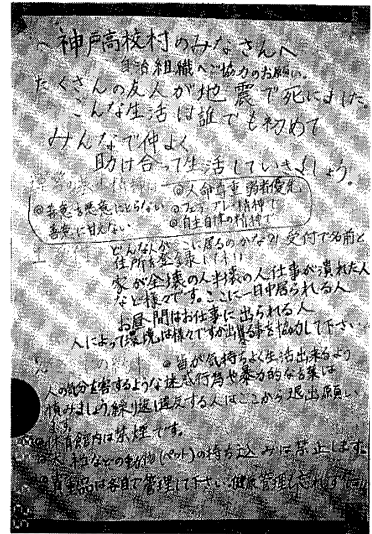 へ神戸高校村のみなさんへ
自治組織へご協力のお願い。
たくさんの友人が地震で死にました。
こんな生活は誰でも初めて
みんなで仲よく
助け合って生活していきましょう。
◎人命尊重 弱者優先
◎善意を悪意にとらない ◎フェアプレイ精神で
善意に甘えない ◎自主自律の精神で
どんな人がここに居るのかな? 受付で名前と
住所を登録して下さい
家が全壊の人半壊の人仕事が潰れた人
など様々です。ここに一日中居られる人
お昼間はお仕事に出られる人
人によって環境は様々ですが出来る事を協力して下さい
◎皆が気持ちよく生活出来るよう
人の気分を害するような迷惑行為や暴力的なる事は
慎みましょう。繰り返し違反する人はここから退出願い
ます。
体育館内は禁煙です。
犬、猫などの動物(ペット)の持ち込みは禁止します。
◎貴重品は各自で管理して下さい。健康管理も忘れずに